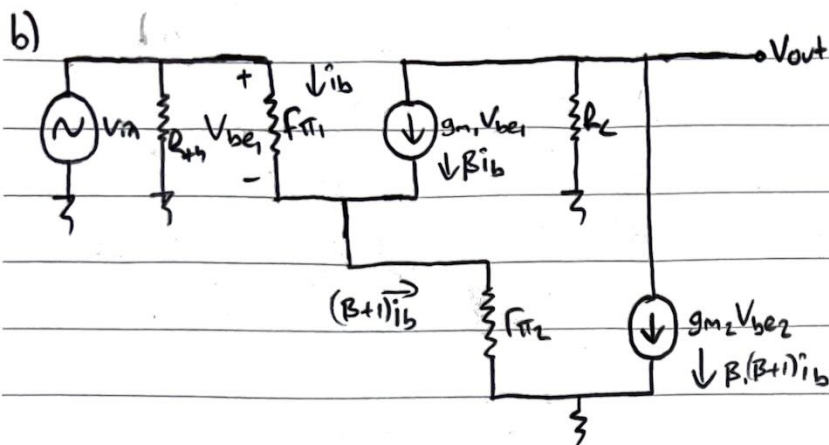 b)
Vout
+
↓ib
Vin
Rth
Vbe1
rπ1
-
gm1 Vbe1
↓βib
Rc
(β+1)ib
rπ2
gm2 Vbe2
↓β.(β+1)ib